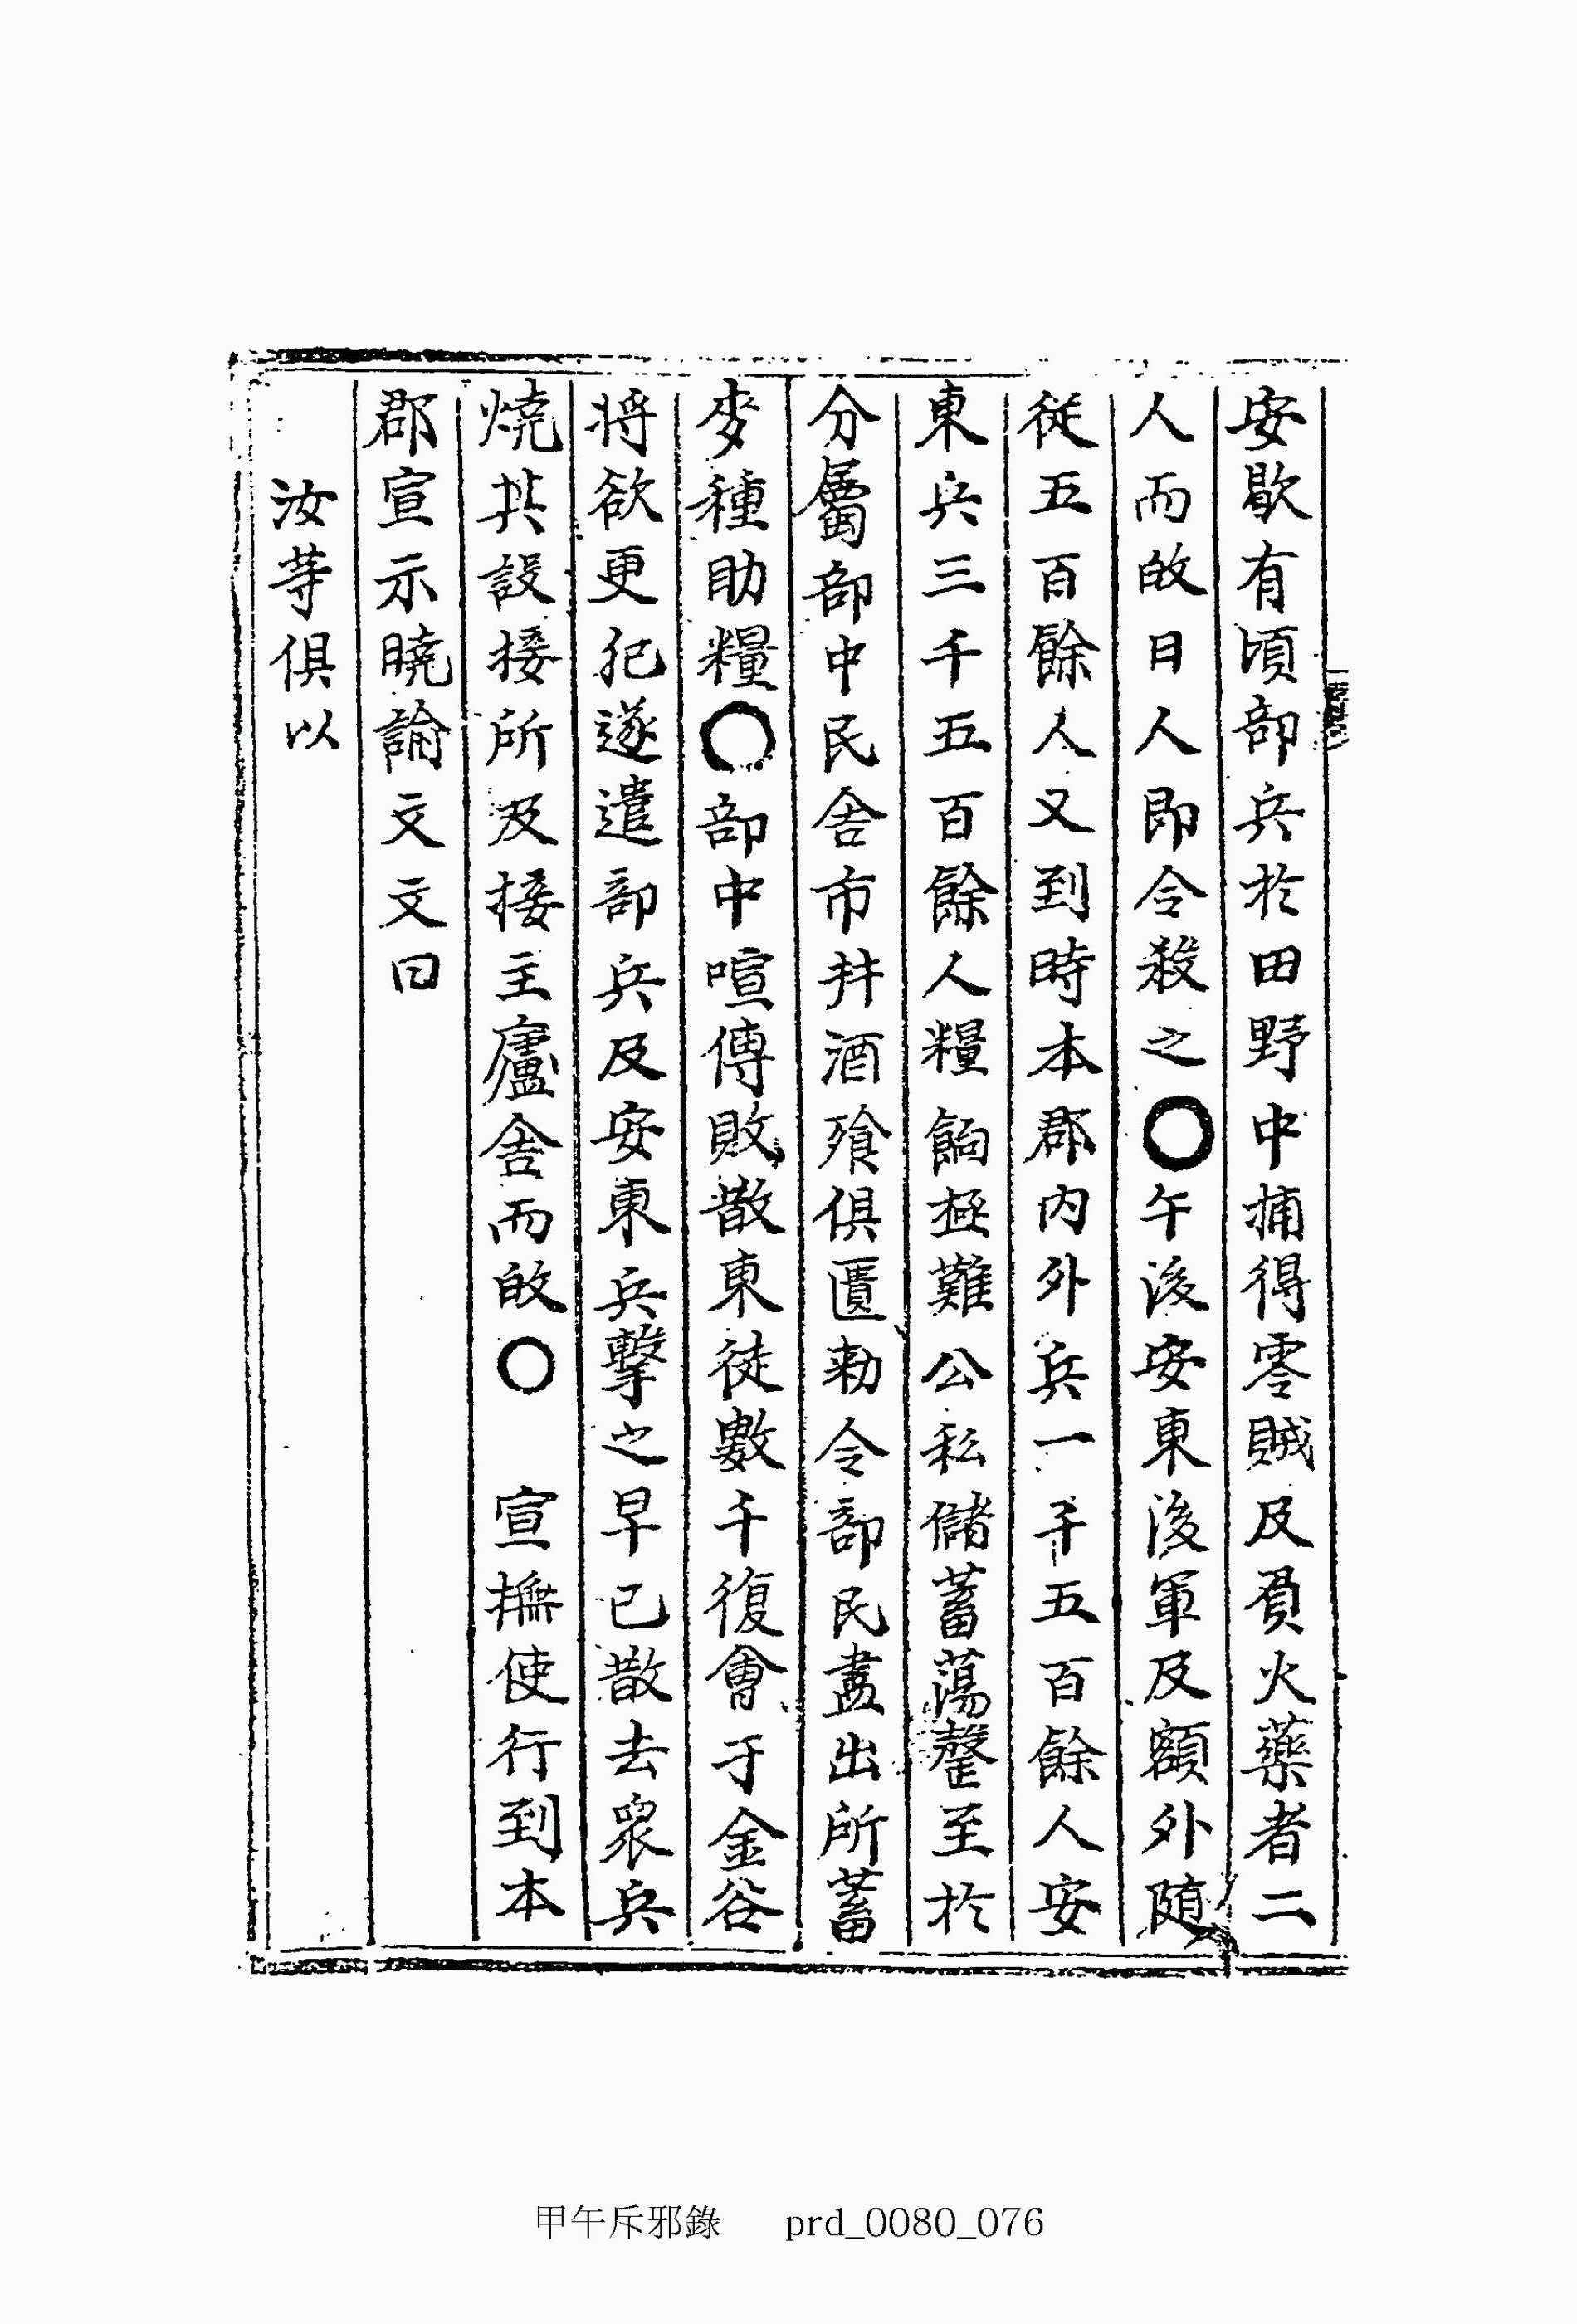 安歇有頃部兵於田野中捕得零賊及負火藥者二
人而皈日人即令殺之○午後安東後軍及額外随
從五百餘人又到時本郡內外兵一千五百餘人安
東兵三千五百餘人糧餉極難公私儲蓄蕩盡至於
分屬部中民舍市井酒飱俱匱勅令部民盡出所蓄
麥種助糧○部中喧傳敗散東徒數千復會于金谷
将欲更犯遂遣部兵及安東兵擊之早已散去衆兵
燒其設接所及接主廬舍而皈○ 宣撫使行到本
郡宣示曉諭文文曰
汝等俱以
甲午斥邪錄 prd_0080_076